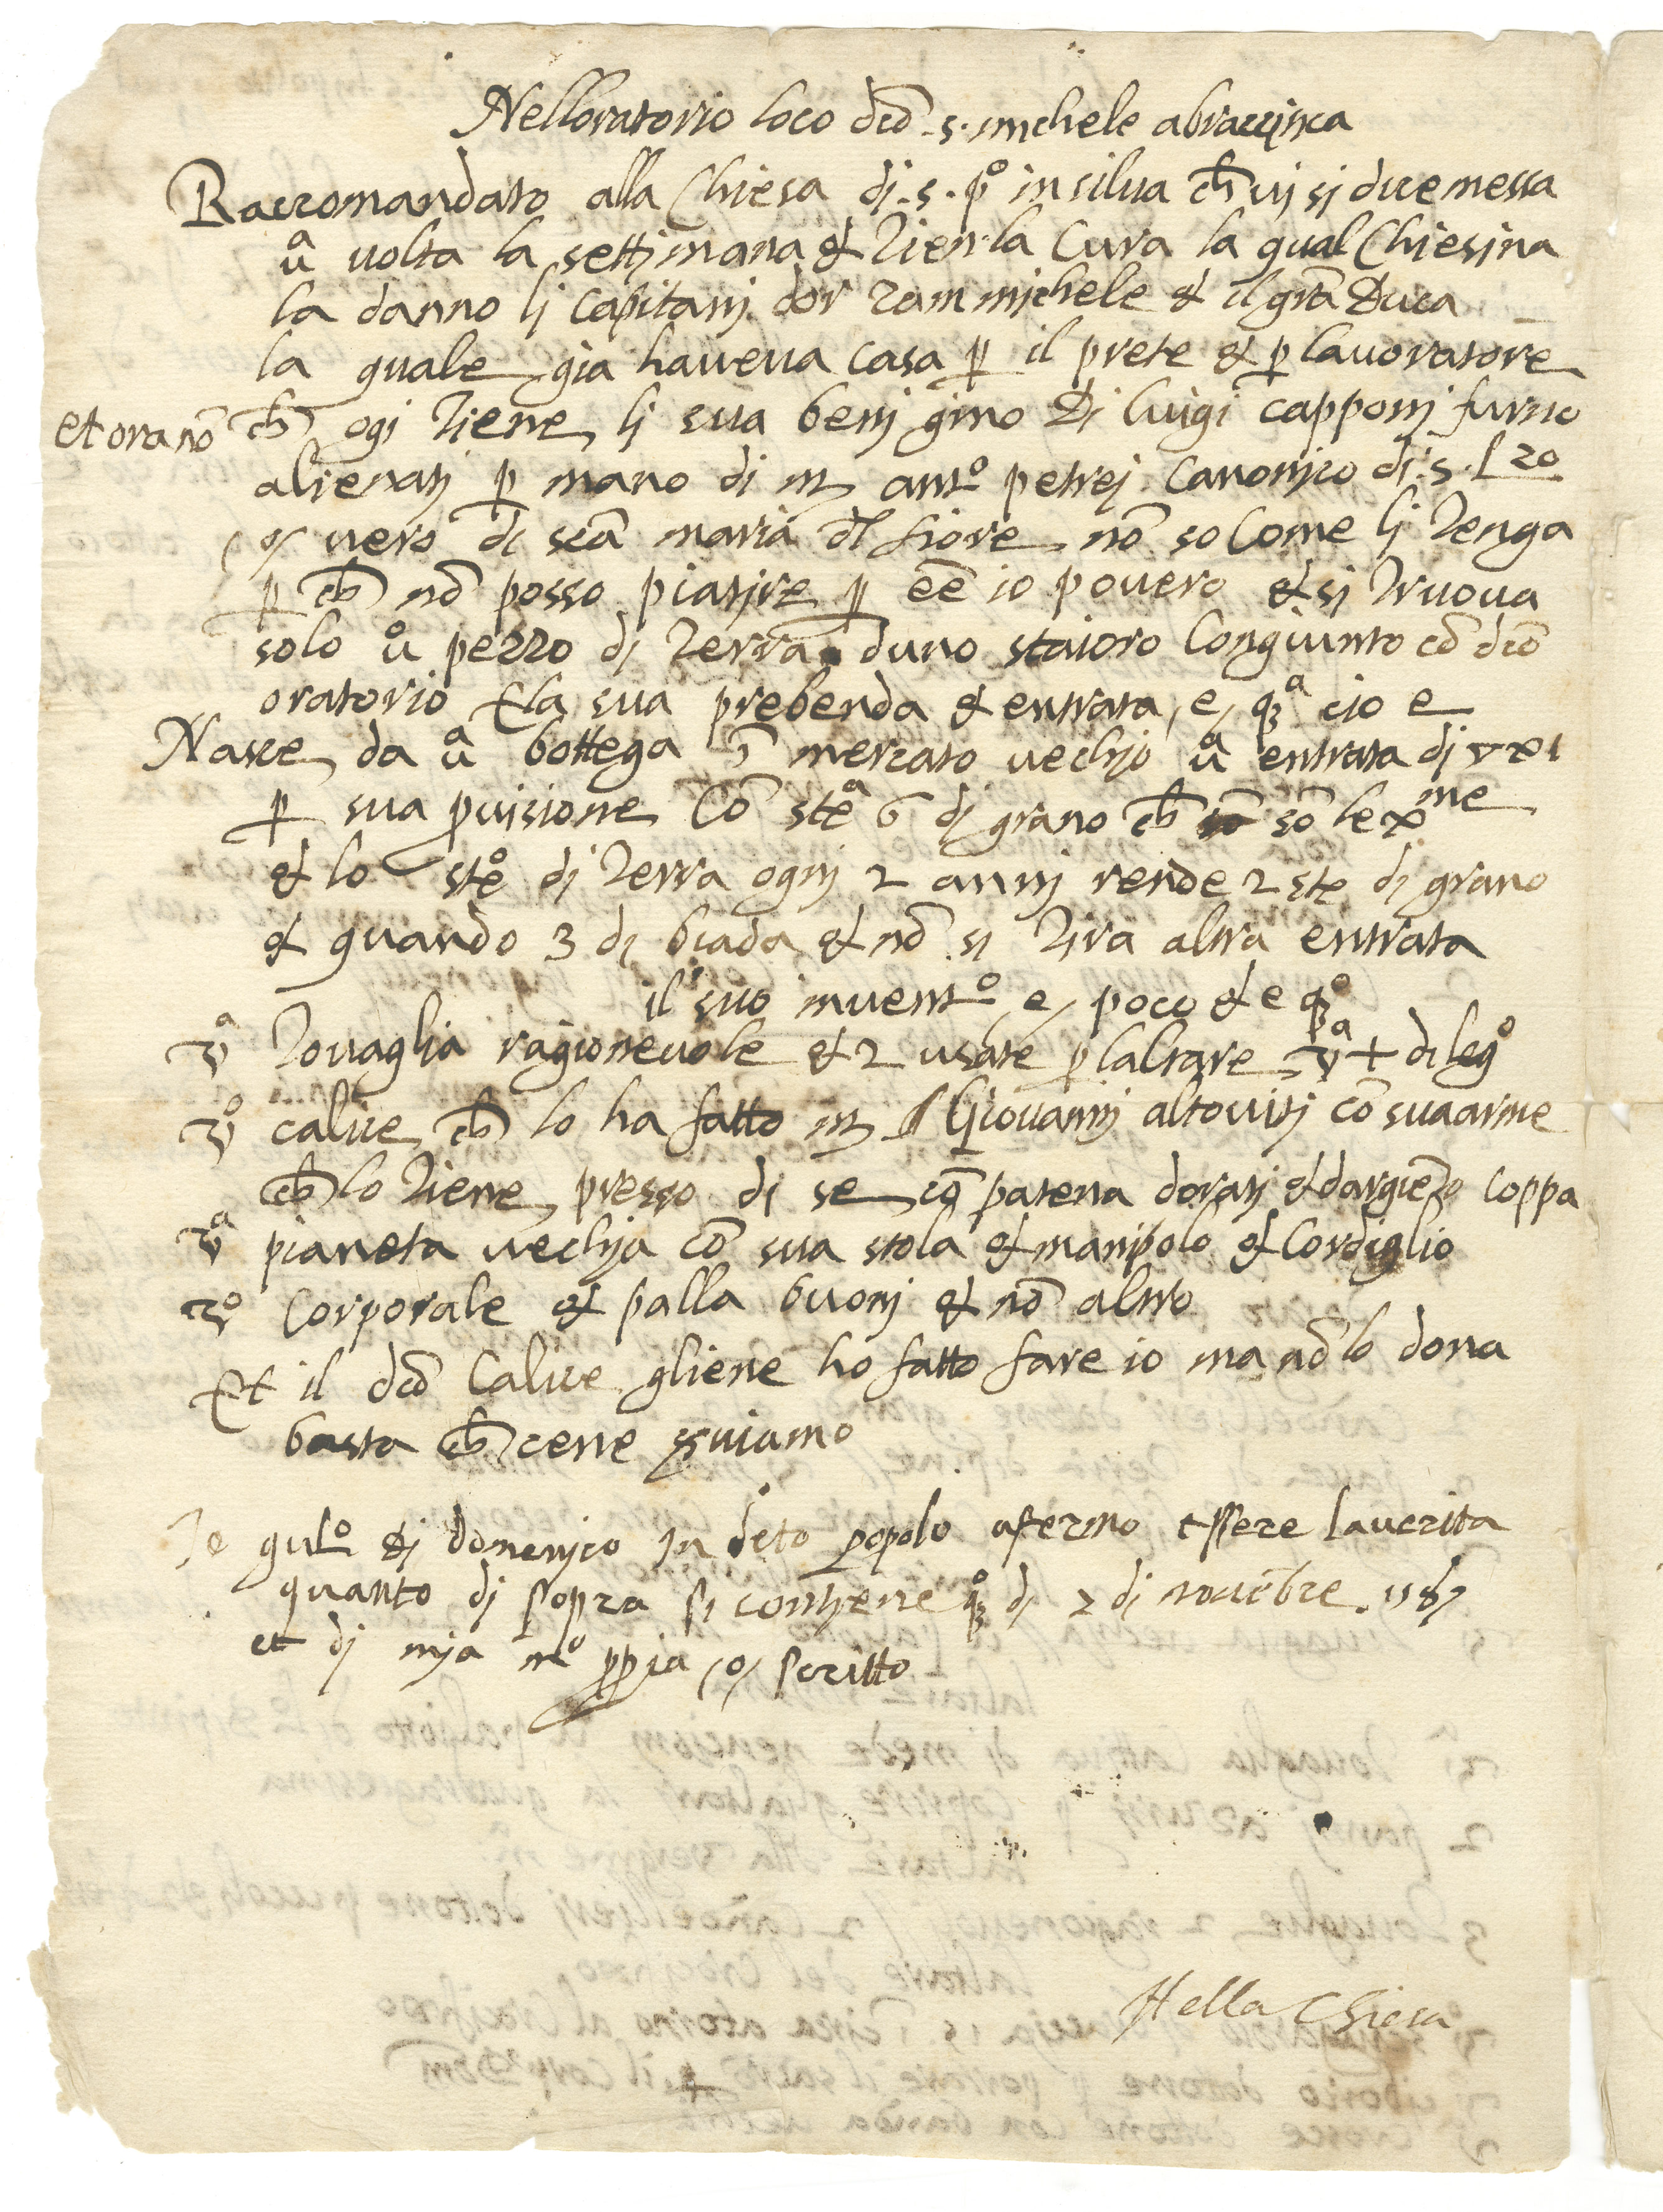 Nelloratorio loco dcō .s. michele abraccisca
Raccromandato alla Chiesa di .s. pº in silua ch vi si dice messa
uª volta la settimana & tien la Cura la qual Chiesina
la danno li Capitani dor zammichele & il grā Duca
la quale gia haueua casa p il prete & p lauoratore
et ora nō ch ogi tiene li sua beni gino di luigi capponi furno
alienati p mano di mº antº petrej Canonico di .s. lzo
o vero di scā maria dl fiore nō so Come li tenga
p ch nō posso piatire p eē io pouero & si truoua
solo uº pezzo di terra duno staioro Congiunto cō dcō
oratorio & la sua prebenda & entrata e qª cio e
Nasce da uª bottega ī mercato vechio uª entrata di vxi
p sua puisione Cō stª 6 di grano ch sō le xme
& lo stº di terra ogni 2 anni rende 2 stª di grano
& quando 3 di biada & nō si tira altra entrata
il suo inuentº e poco & e qº
vª Tovaglia ragioneuole & 2 usate p laltare vª + di legº
vº calice ch lo ha fatto mº Giovanni altoviti cō sua arme
ch lo tiene presso di se cō patena dorati & dargiēto coppa
vª pianeta vechia cō sua stola & manipolo & Cordiglio
vº Corporale & palla buoni & nō altro
Et il dcō Calice gliene ho fatto fare io ma nō lo dona
basta ch cene seruiamo
Io gulº di domenico in deto popolo afermo essere la uerita
quanto di sopra si contiene qº di 2 di nouēbre .1587
et di mia mº ppia o scritto
Nella Chiesa